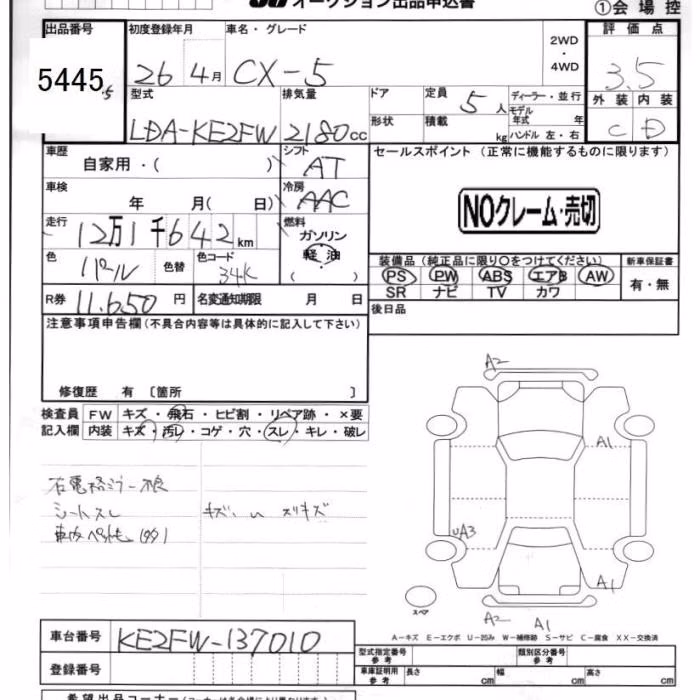 オークション出品申込書
①会場控
出品番号
初度登録年月
車名・グレード
2WD
・
4WD
評価点
5445
26 4月
CX-5
3.5
型式
排気量
ドア
定員
5人
ディーラー・並行
外装 内装
モデル年式 年式
形状
積載
kg
ハンドル 左・右
C D
LDA-KE2FW 2180cc
車歴
自家用・( )
シフト
AT
セールスポイント (正常に機能するものに限ります)
車検
年 月( 日)
冷房
AAC
NOクレーム・売切
走行
12万1千642km
燃料
ガソリン
軽油
( )
色
パール
色替
色コード
34K
装備品(純正品に限り○をつけてください)
新車保証書
PS PW ABS エアB AW
有・無
SR ナビ TV カワ
R券 11,650円
名変通知期限 月 日
後日品
注意事項申告欄(不具合内容等は具体的に記入して下さい)
修復歴 有 〔箇所 〕
検査員 FW キズ・飛石・ヒビ割・リペア跡・×要
記入欄 内装 キズ・汚レ・コゲ・穴・スレ・キレ・破レ
A2
A1
右電格ミラー
シートスレ
キズ、
UA3
A1
スペア
A2 A1
A-キズ E-エクボ U-凹み W-補修跡 S-サビ C-腐食 XX-交換済
車台番号 KE2FW-137010
型式指定番号
参考
類別区分番号
参考
登録番号
車庫証明用
参考
長さ
cm
幅
cm
高さ
cm
希望出品コーナー